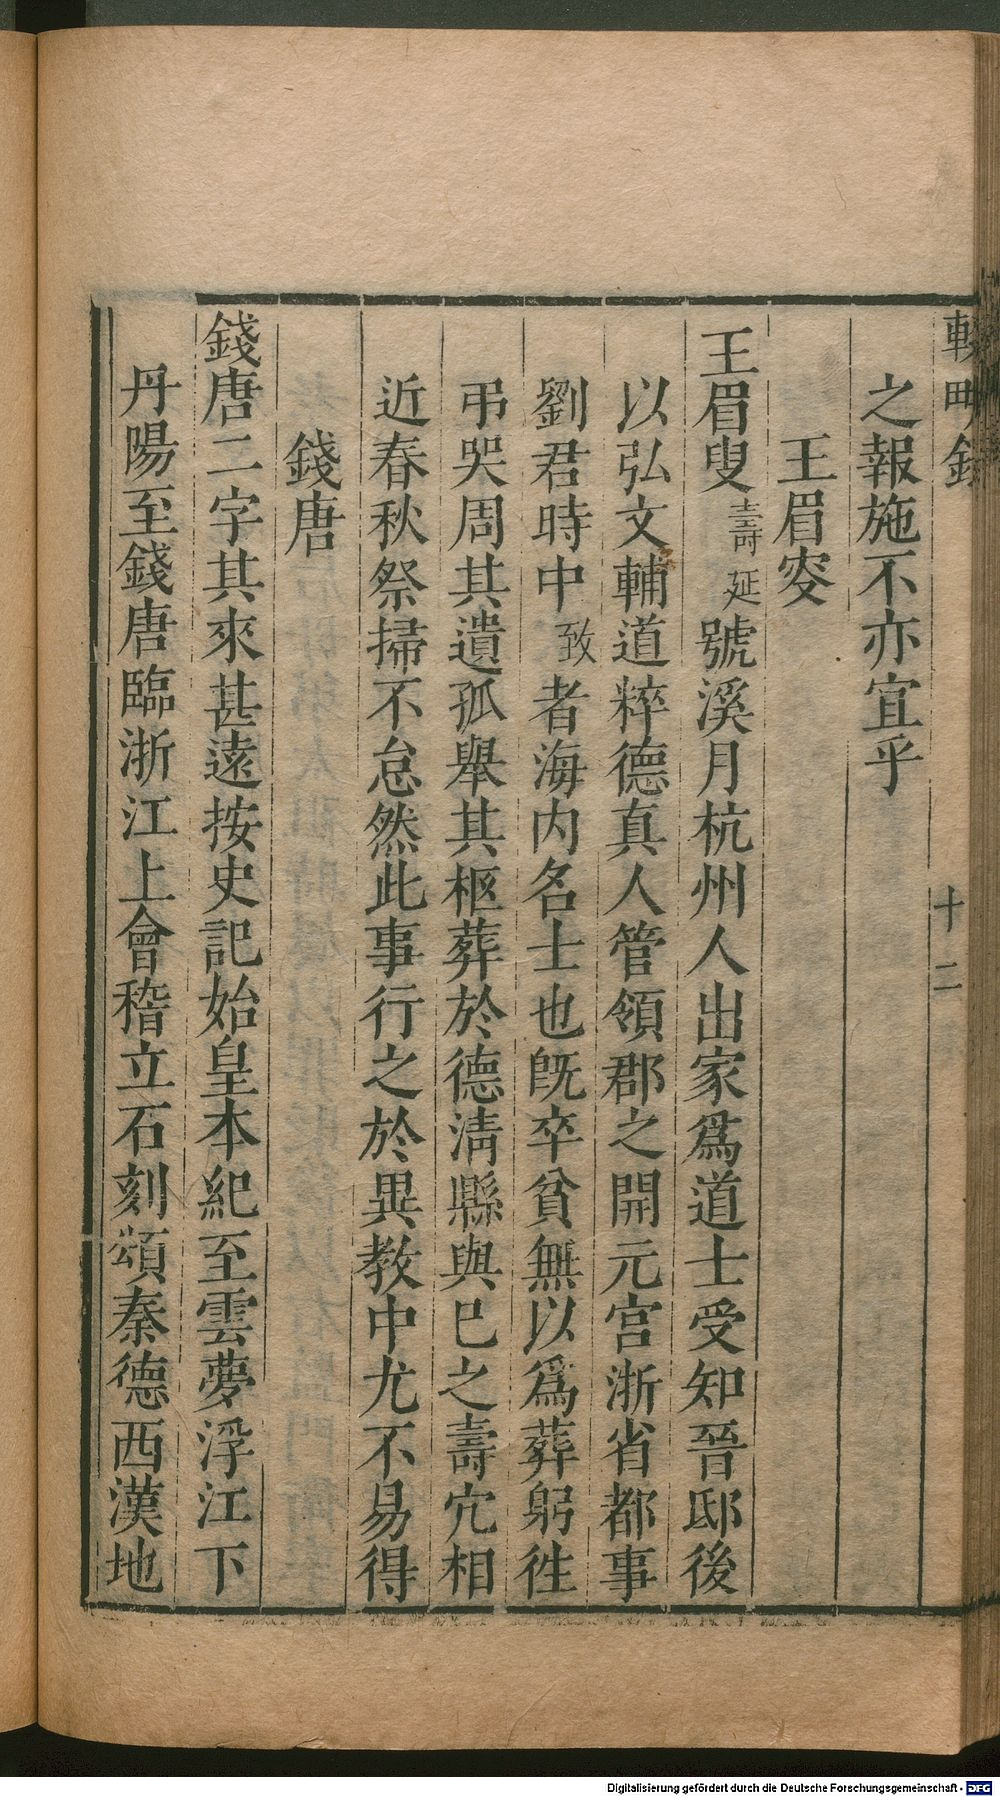 輟畊錄
十二
之報施不亦宜乎
王眉叟
王眉叟壽延號溪月杭州人出家爲道士受知晉邸後
以弘文輔道粹德真人管領郡之開元宮浙省都事
劉君時中致者海内名士也旣卒貧無以爲葬躬徃
弔哭周其遺孤舉其柩葬於德淸縣與巳之壽穴相
近春秋祭掃不怠然此事行之於異教中尤不易得
錢唐
錢唐二字其來甚遠按史記始皇本紀至雲夢浮江下
丹陽至錢唐臨浙江上會稽立石刻頌秦德西漢地
Digitalisierung gefördert durch die Deutsche Forschungsgemeinschaft - DFG